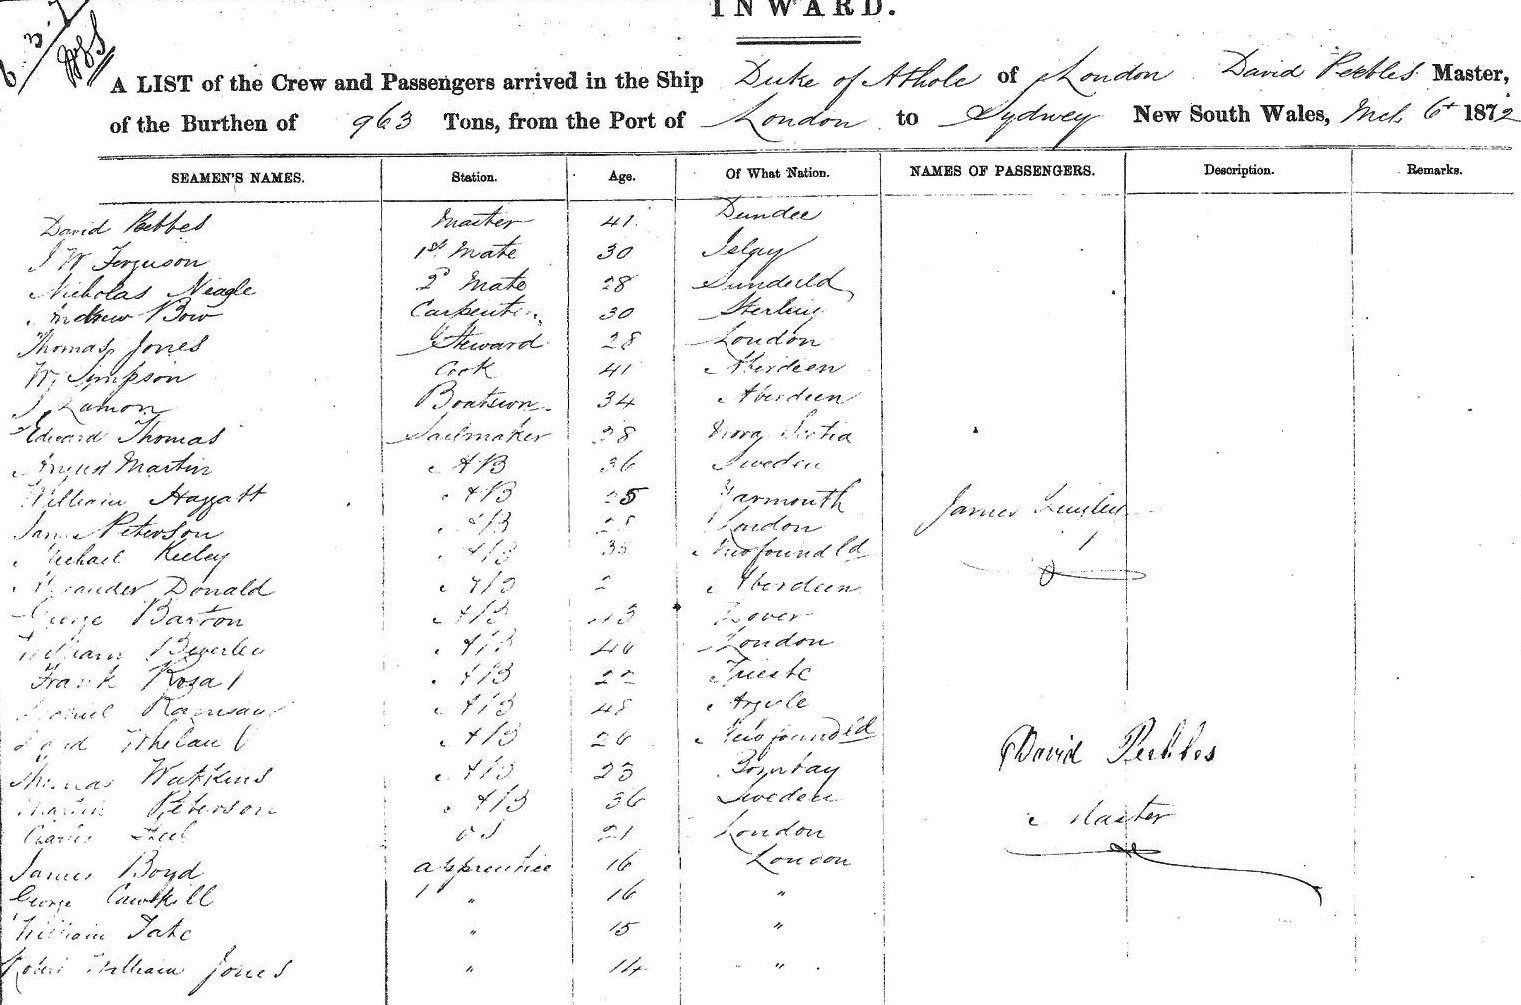 INWARD.
A LIST of the Crew and Passengers arrived in the Ship Duke of Athole of London David Peebles Master,
of the Burthen of 963 Tons, from the Port of London to Sydney New South Wales, Mch 6th 1872
SEAMEN'S NAMES. Station. Age. Of What Nation. NAMES OF PASSENGERS. Description. Remarks.
David Peebles Master 41 Dundee
J W Ferguson 1st Mate 30 Islay
Nicholas Neagle 2d Mate 28 Sunderld
Andrew Bow Carpenter 30 Sterling
Thomas Jones Steward 28 London
W Simpson Cook 41 Aberdeen
J Lamon Boatswn 34 Aberdeen
Edward Thomas Sailmaker 28 Nova Scotia
Angus Martin AB 36 Sweden
William Haggatt AB 25 Yarmouth James
James Peterson AB London
Michael Kieley AB Newfoundld
Alexander Donald AB Aberdeen
George Barton AB Dover
William Beverley AB 46 London
Frank AB 22 Trieste
Samuel Ramsay AB 48 Argyle
Whelan AB 26 Newfoundld
David Peebles
Thomas Watkins AB 23 Bombay
Martin Peterson AB 36 Sweden
Master
Charles OS 21 London
James Boyd apprentice 16 London
George Cawskill " 16 "
William Tate " 15 "
Robert William Jones " 14 "